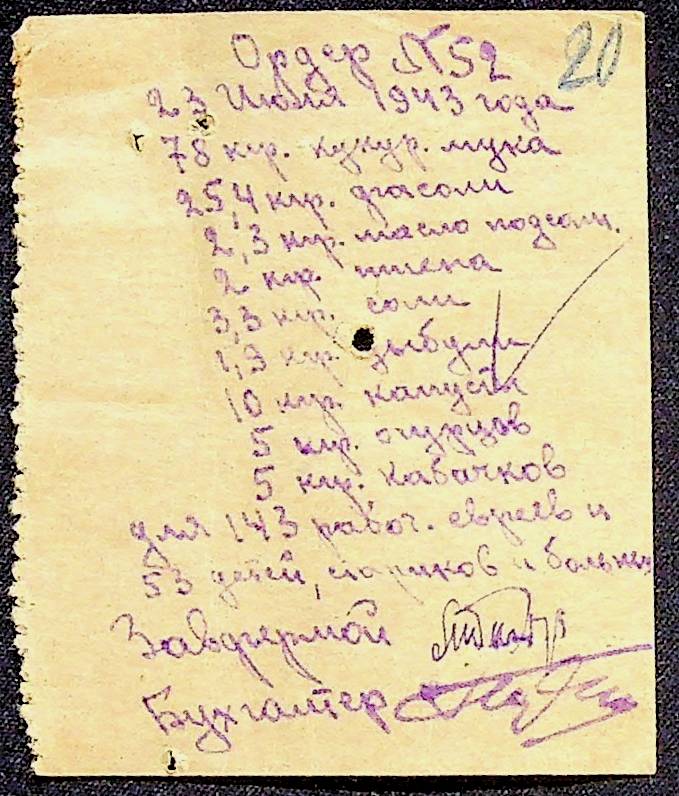 20
Ордер №52
23 Июля 1943 года
78 кгр. кукур. мука
25,4 кгр. фасоли
2,3 кгр. масло подсолн.
2 кгр. пшена
3,3 кгр. соли
1,9 кгр. цыбули
10 кгр. капусты
5 кгр. огурцов
5 кгр. кабачков
для 143 работ. евреев и
53 детей, стариков и больных
Завфермой
Бухгалтер